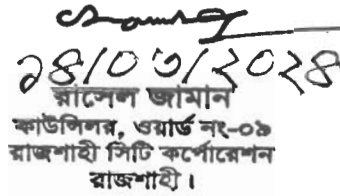 ১৪/০৩/২০২৪
রাসেল জামান
কাউন্সিলর, ওয়ার্ড নং-০৯
রাজশাহী সিটি কর্পোরেশন
রাজশাহী।